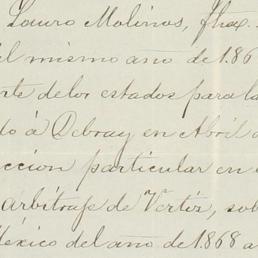 Lauro Molinos,
el mismo ano de 186
te de los estados para la
do á Debray en Abril
ccion particular en
arbitraje de Vertiz, sob
México del ano de 1868 a